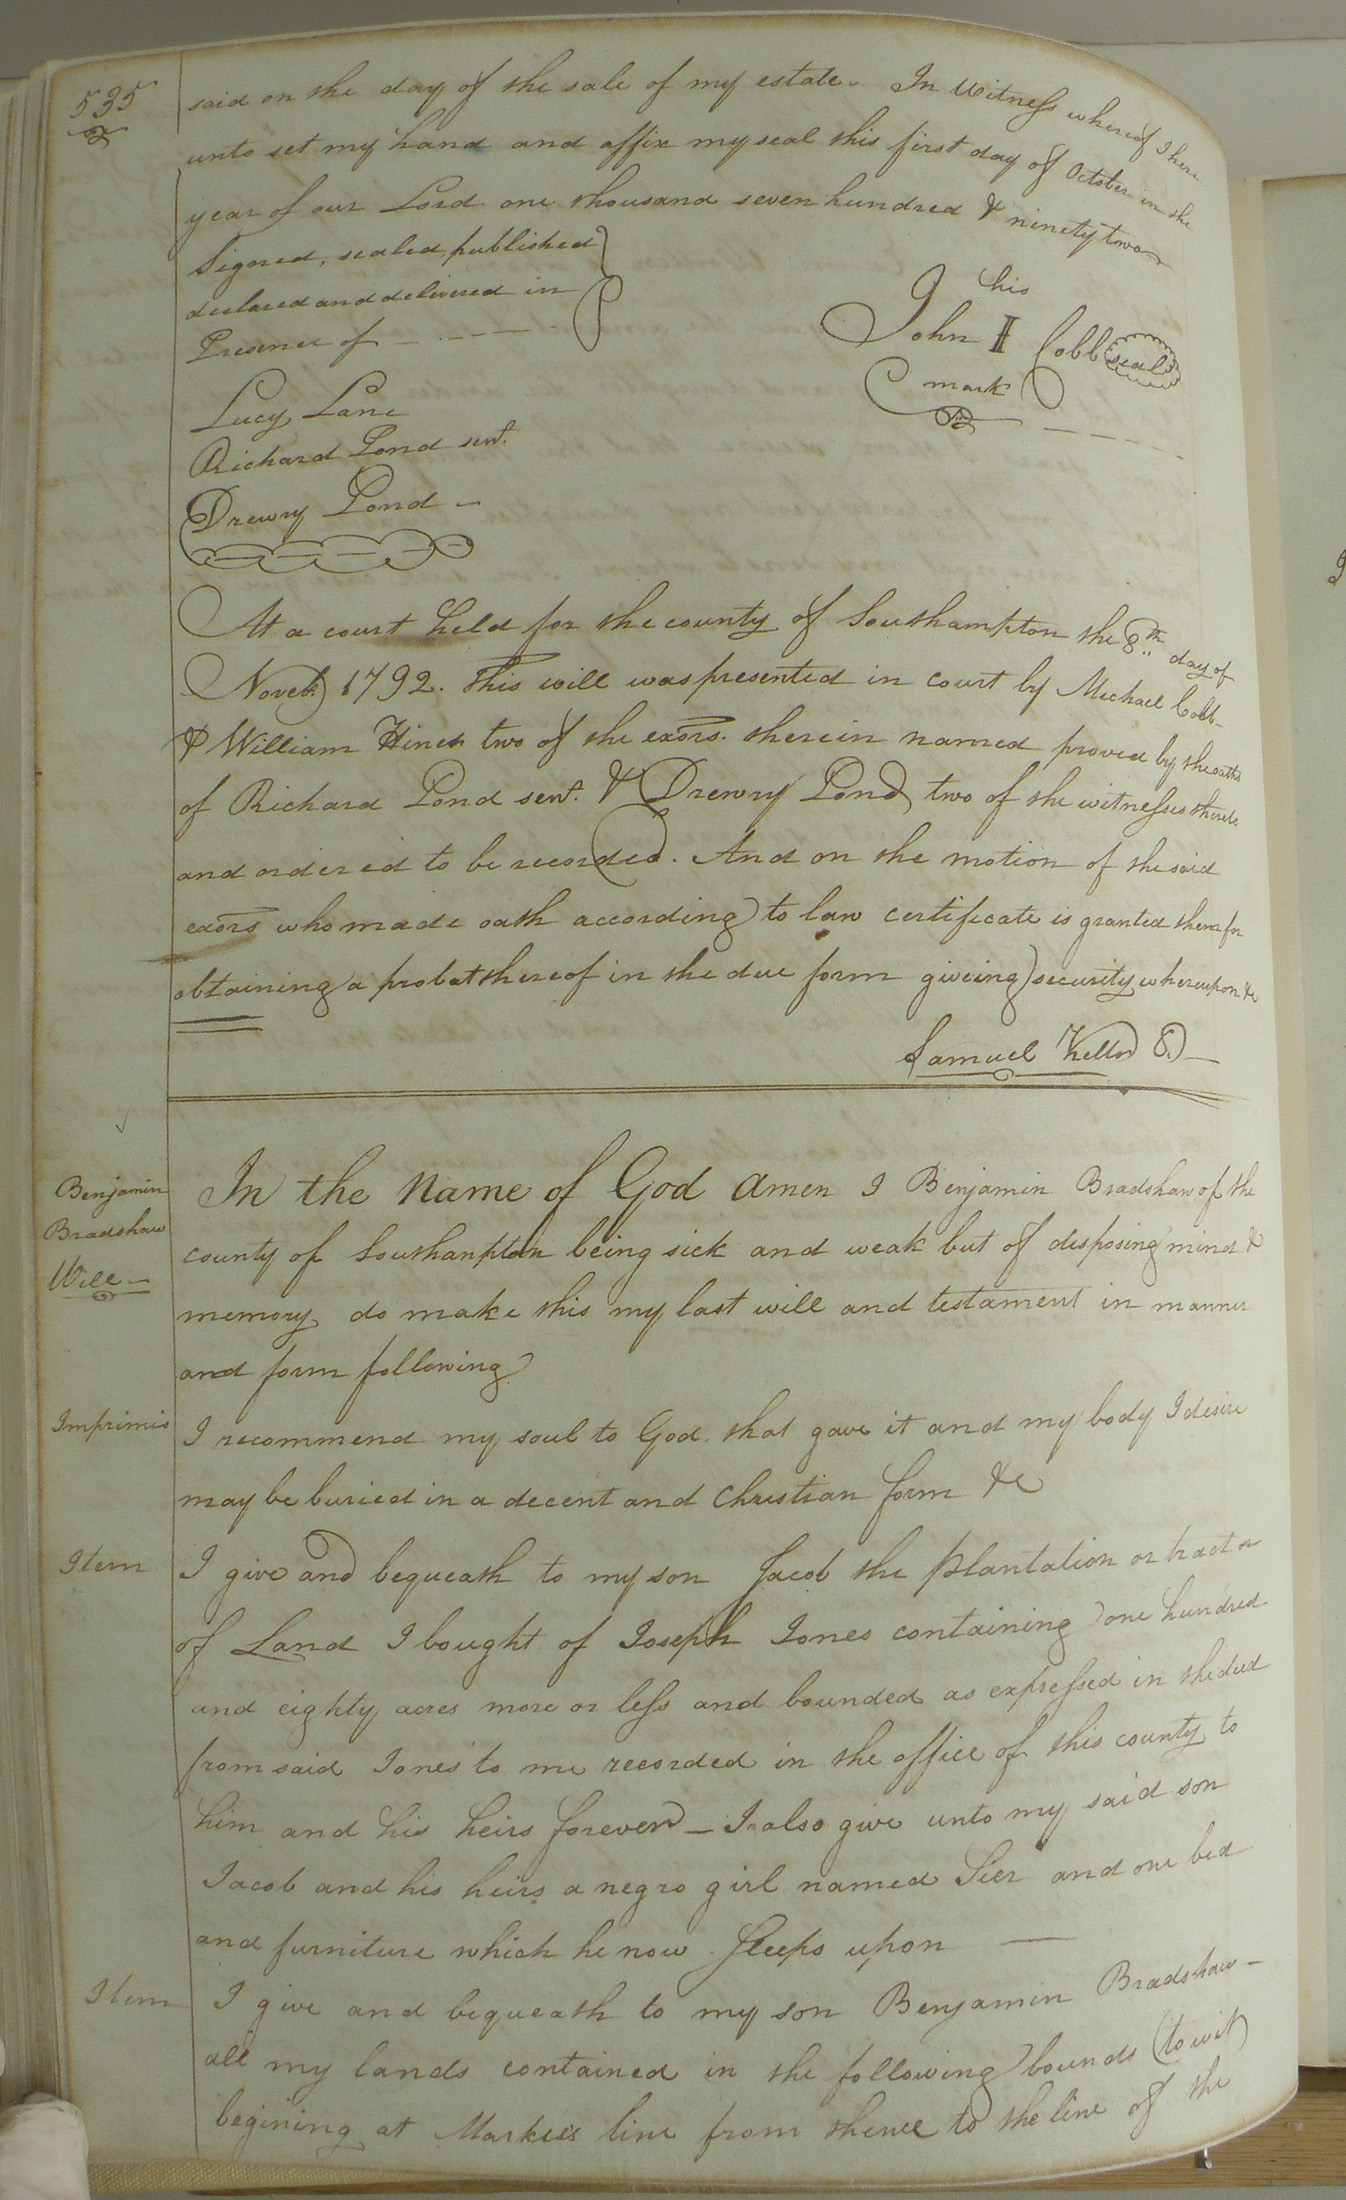 535
said on the day of the sale of my estate. In Witness whereof I here
unto set my hand and affix my seal this first day of October in the
year of our Lord one thousand seven hundred & ninety two
Signed, sealed, published
declared and delivered in
Presence of
his
John II Cobb seal
mark
Lucy Lane
Richard Pond senr.
Drewry Pond
At a court held for the county of Southampton the 8th day of
Novebr 1792. This will was presented in court by Michael Cobb
& William Hines two of the exors. therein named proved by the oaths
of Richard Pond senr. & Drewry Pond two of the witnesses thereto
and ordered to be recorded. And on the motion of the said
exors who made oath according to law certificate is granted them for
obtaining a probat thereof in the due form giveing security whereupon &c
Samuel Kello
Benjamin
Bradshaw
Will
In the Name of God Amen I Benjamin Bradshaw of the
county of Southampton being sick and weak but of disposing mind &
memory do make this my last will and testament in manner
and form following
Imprimis I recommend my soul to God that gave it and my body I desire
may be buried in a decent and Christian form &c
Item I give and bequeath to my son Jacob the plantation or tract
of Land I bought of Joseph Jones containing one hundred
and eighty acres more or less and bounded as expressed in the deed
from said Jones to me recorded in the office of this county to
him and his heirs forever — I also give unto my said son
Jacob and his heirs a negro girl named and one bed
and furniture which he now Sleeps upon —
Item I give and bequeath to my son Benjamin Bradshaw
all my lands contained in the following bounds (to wit)
begining at line from thence to the line of the